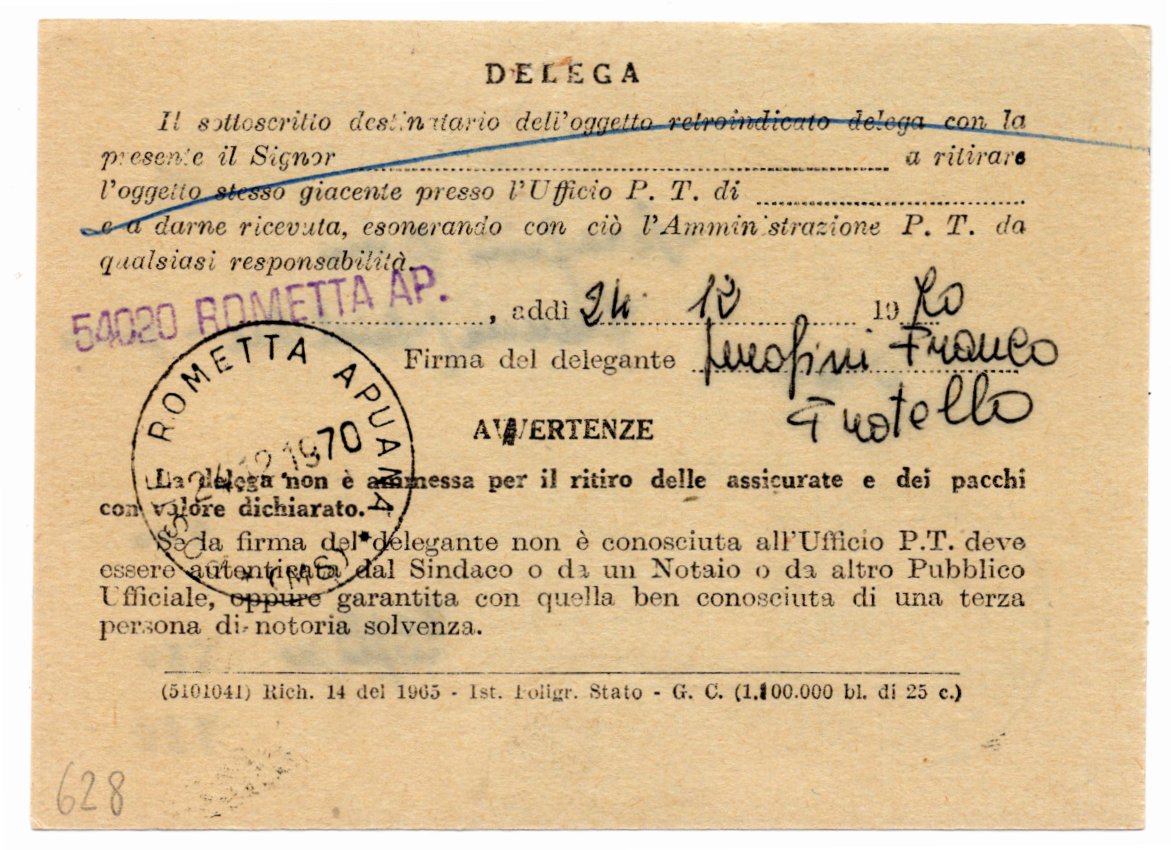 DELEGA
Il sottoscritto destinatario dell'oggetto retroindicato delega con la
presente il Signor a ritirare
l'oggetto stesso giacente presso l'Ufficio P. T. di
e a darne ricevuta, esonerando con ciò l'Amministrazione P. T. da
qualsiasi responsabilità.
54020 ROMETTA AP.
, addì 24 12 1970
Firma del delegante Serafini Franco
Fratello
ROMETTA APUANA
24.12.1970
(MS)
AVVERTENZE
La delega non è ammessa per il ritiro delle assicurate e dei pacchi
con valore dichiarato.
Se la firma del delegante non è conosciuta all'Ufficio P.T. deve
essere autenticata dal Sindaco o da un Notaio o da altro Pubblico
Ufficiale, oppure garantita con quella ben conosciuta di una terza
persona di notoria solvenza.
(5101041) Rich. 14 del 1965 - Ist. Poligr. Stato - G. C. (1.100.000 bl. di 25 c.)
628